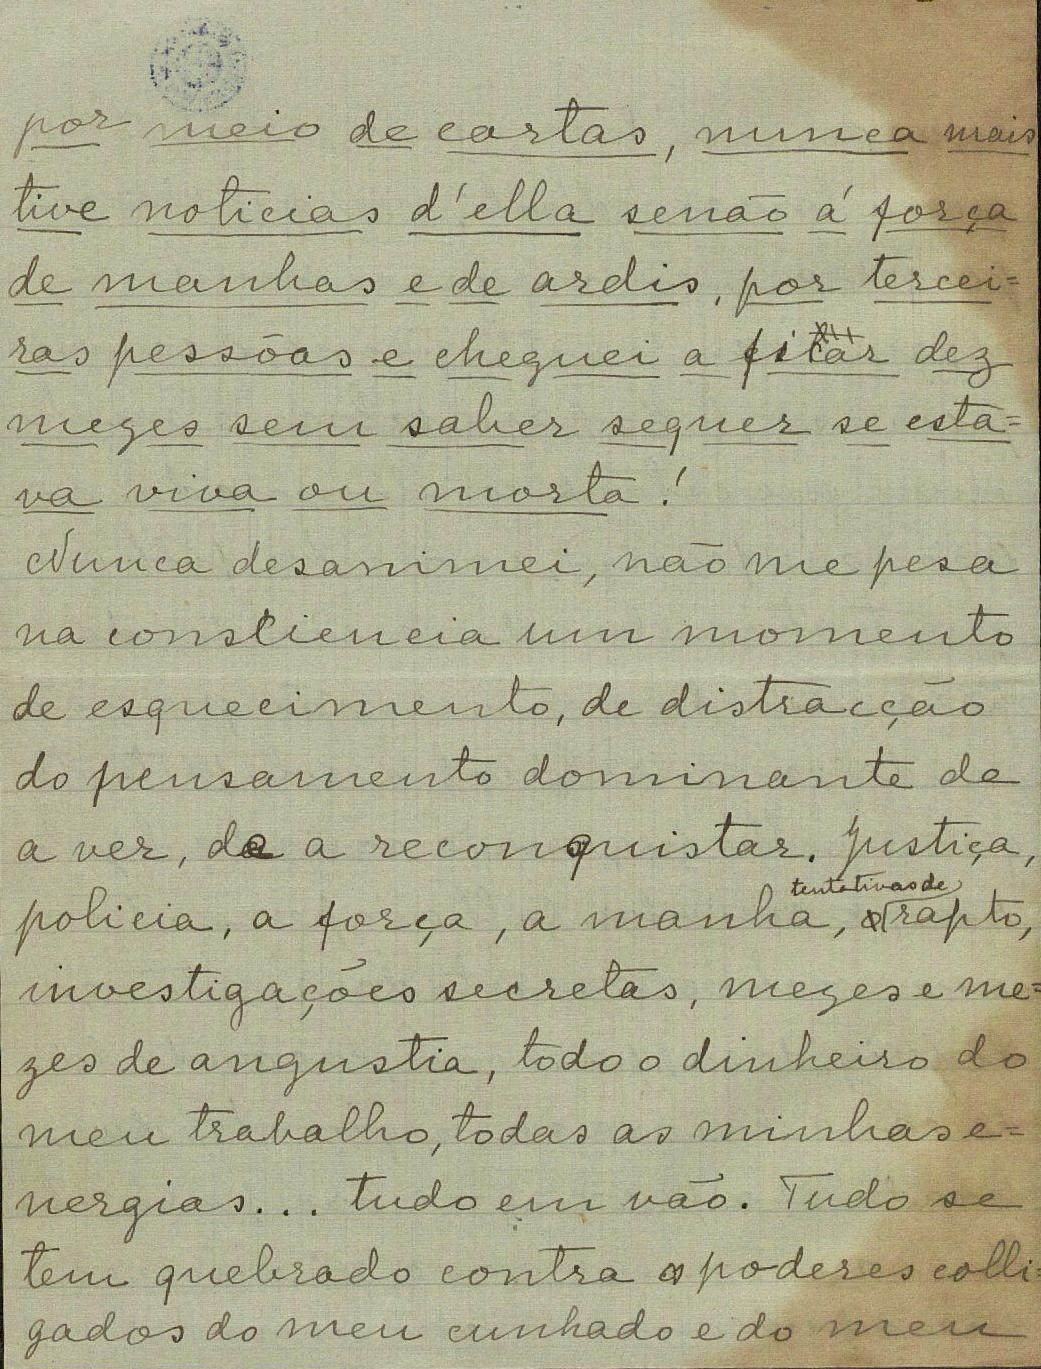 por meio de cartas, nunca mais
tive noticias d'ella senão á força
de manhas e de ardis, por tercei=
ras pessôas e cheguei a fitar dez
mezes sem saber sequer se esta=
va viva ou morta!
Nunca desanimei, não me pesa
na consciencia um momento
de esquecimento, de distracção
do pensamento dominante de
a ver, de a reconquistar. Justiça,
tentativas de
policia, a força, a manha, rapto,
investigações secretas, mezes e me=
zes de angustia, todo o dinheiro do
meu trabalho, todas as minhas e=
nergias... tudo em vão. Tudo se
tem quebrado contra os poderes colli=
gados do meu cunhado e do meu